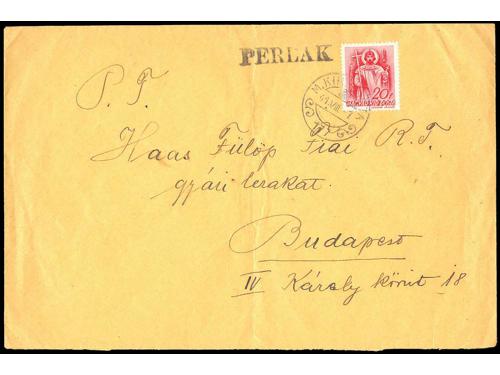 PERLAK
20f
MAGYARORSZÁG
M.KIR.
P. T.
Haas Fülöp Fiai R.T.
gyári lerakat.
Budapest
IV Károly körút 18